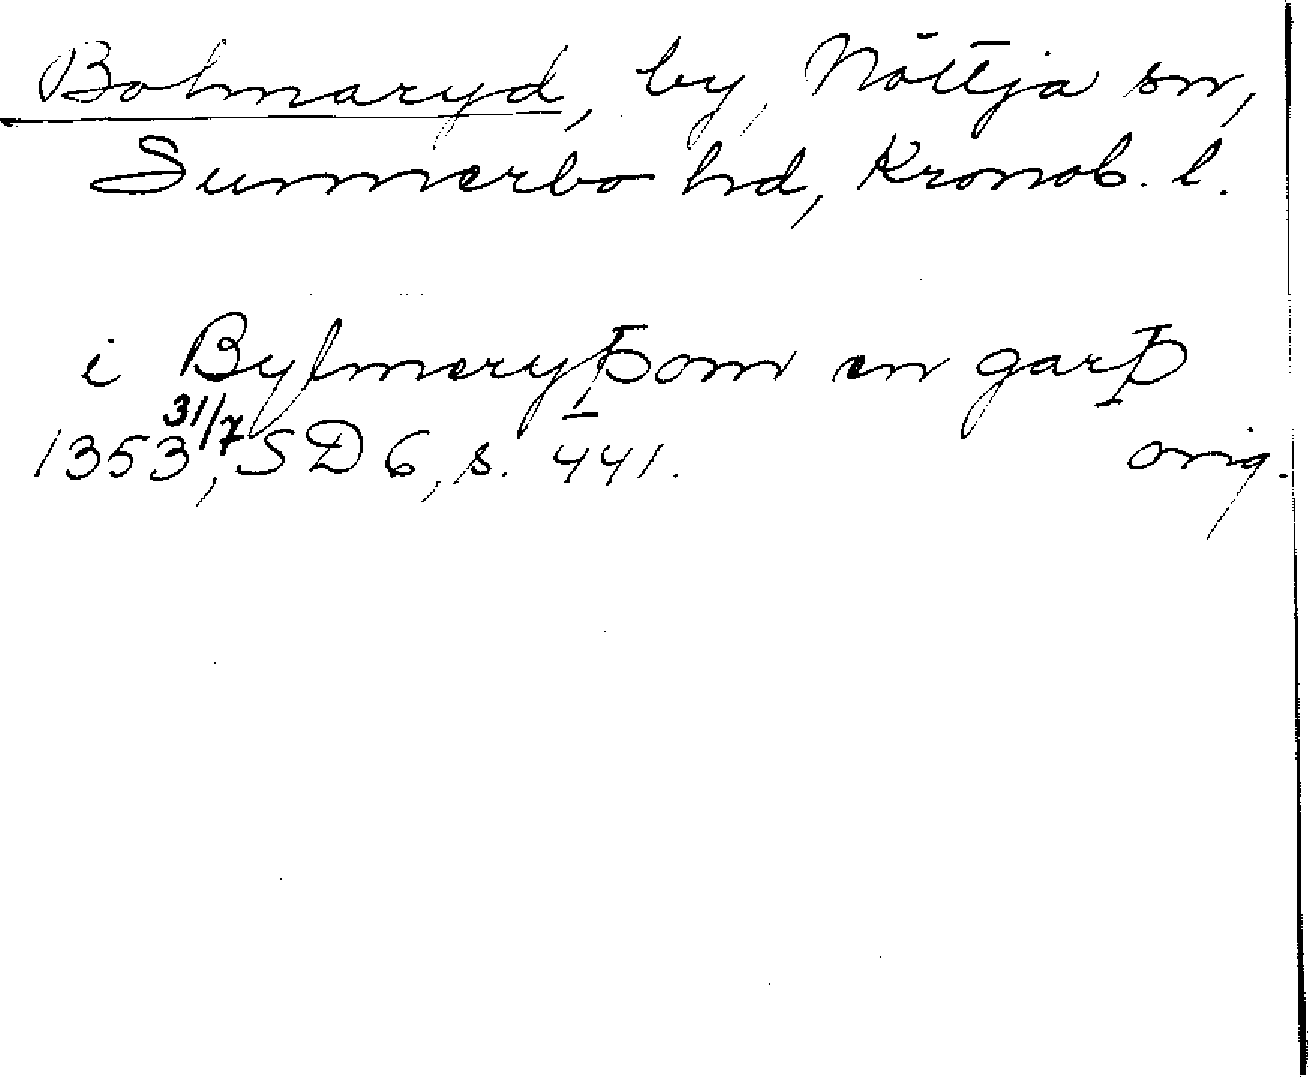 Bolmaryd, by, Nöttja sn,
Sunnerbo hd, Kronob. l.
i Bylmeryþom en garþ
1353 31/7, SD 6, s. 441. orig.